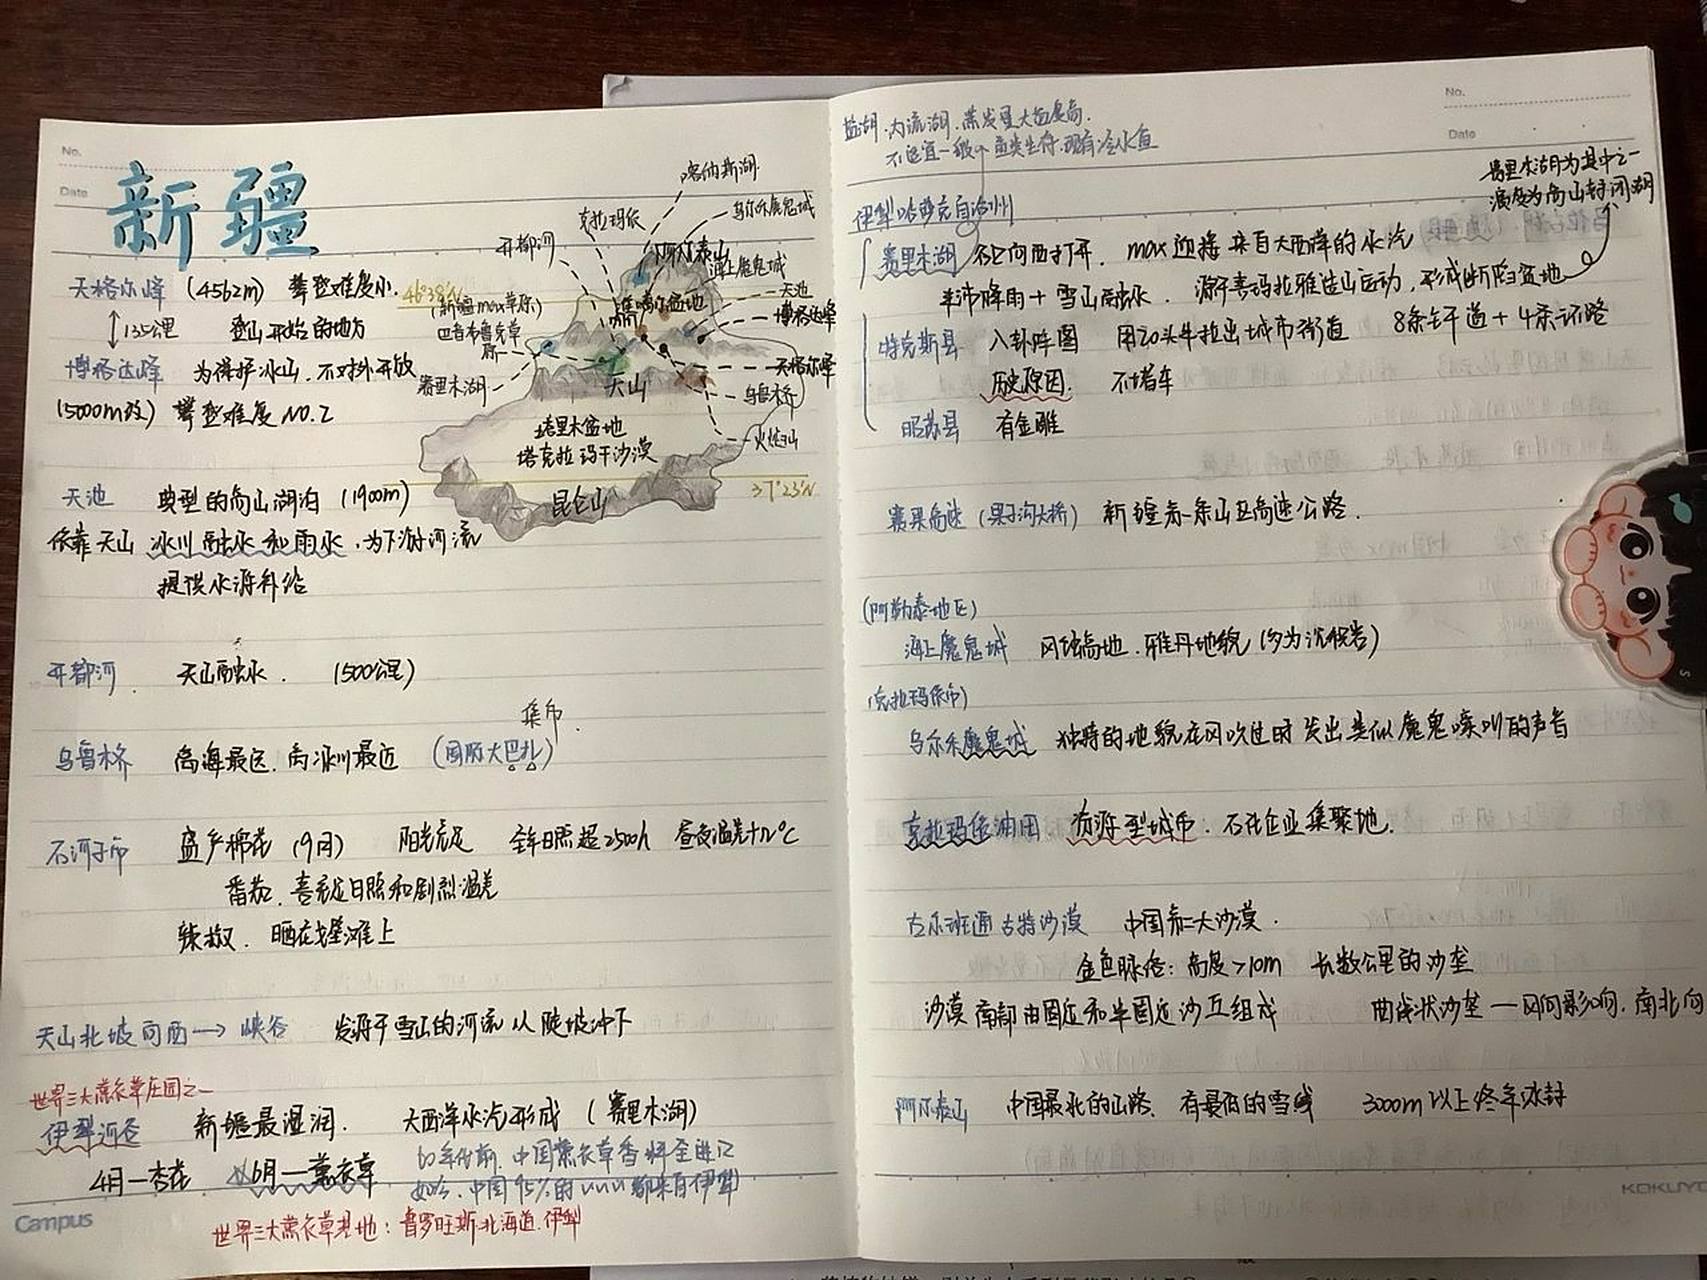 No.
Date
新疆
喀纳斯湖
乌尔禾魔鬼城
克拉玛依
开都河
阿尔泰山
海上魔鬼城
准噶尔盆地
天池
博格达峰
46°38′N
(新疆max草原)
巴音布鲁克草
原
天格尔峰
赛里木湖
天山
乌鲁木齐
火焰山
塔里木盆地
塔克拉玛干沙漠
37°23′N
昆仑山
天格尔峰 (4562m) 攀登难度小.
135公里 登山开始的地方
博格达峰 为保护冰山,不对外开放
(5000m级) 攀登难度NO.2
天池 典型的高山湖泊 (1900m)
依靠天山 冰川融水和雨水,为下游河流
提供水源补给
开都河. 天山融水. (500公里)
集市.
乌鲁木齐 离海最远,离冰川最近 (国际大巴扎)
石河子市 盛产棉花 (9月) 阳光充足 全年日照超2500h 昼夜温差十几°C
番茄. 喜充足日照和剧烈温差
辣椒. 晒在戈壁滩上
天山北坡向西→峡谷 发源于雪山的河流从陡坡冲下
世界三大薰衣草庄园之一
伊犁河谷 新疆最湿润. 大西洋水汽形成 (赛里木湖)
4月—杏花 6月—薰衣草
60年代前,中国薰衣草香料全进口
如今,中国95%的 都来自伊犁
世界三大薰衣草基地:普罗旺斯.北海道.伊犁
Campus
No.
Date
盐湖.内流湖.蒸发量大盐度高.
不适宜一般 鱼类生存.现有冷水鱼
赛里木湖为其中之一
演变为高山封闭湖
伊犁哈萨克自治州
赛里木湖 谷口向西打开. max迎接来自大西洋的水汽
丰沛降雨+雪山融水. 源于喜玛拉雅造山运动,形成断陷盆地
特克斯县 八卦阵图 用20头牛拉出城市街道 8条主干道+4条环路
历史原因. 不堵车
昭苏县 有金雕
赛果高速 (果子沟大桥) 新疆第一条山区高速公路.
(阿勒泰地区)
海上魔鬼城 风蚀高地.雅丹地貌 (多为沉积岩)
(克拉玛依市)
乌尔禾魔鬼城 独特的地貌在风吹过时发出类似魔鬼嚎叫的声音
克拉玛依油田 资源型城市. 石化企业集聚地.
古尔班通古特沙漠 中国第二大沙漠.
金色脉络:高度>10m 长数公里的沙垄
沙漠南部由固定和半固定沙丘组成 曲线状沙垄—风向影响,南北向
阿尔泰山 中国最北的山路. 有最低的雪线 3000m以上终年冰封
KOKUYO